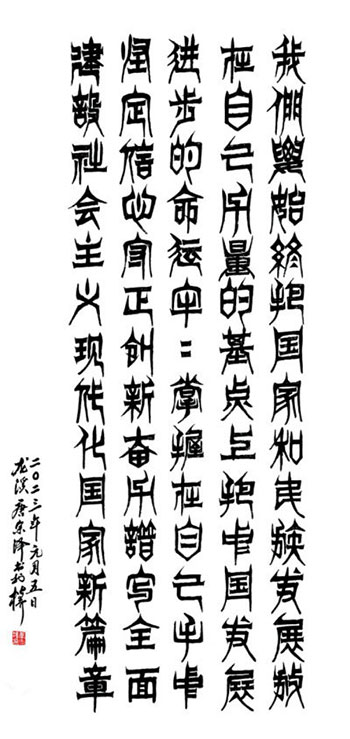 我們要始终把国家和民族发展放
在自己力量的基点上把中国发展
进步的命运牢〻掌握在自己手中
坚定信心守正创新奋力谱写全面
建設社会主义现代化国家新篇章
二〇二三年元月五日
龙溪唐宗泽书